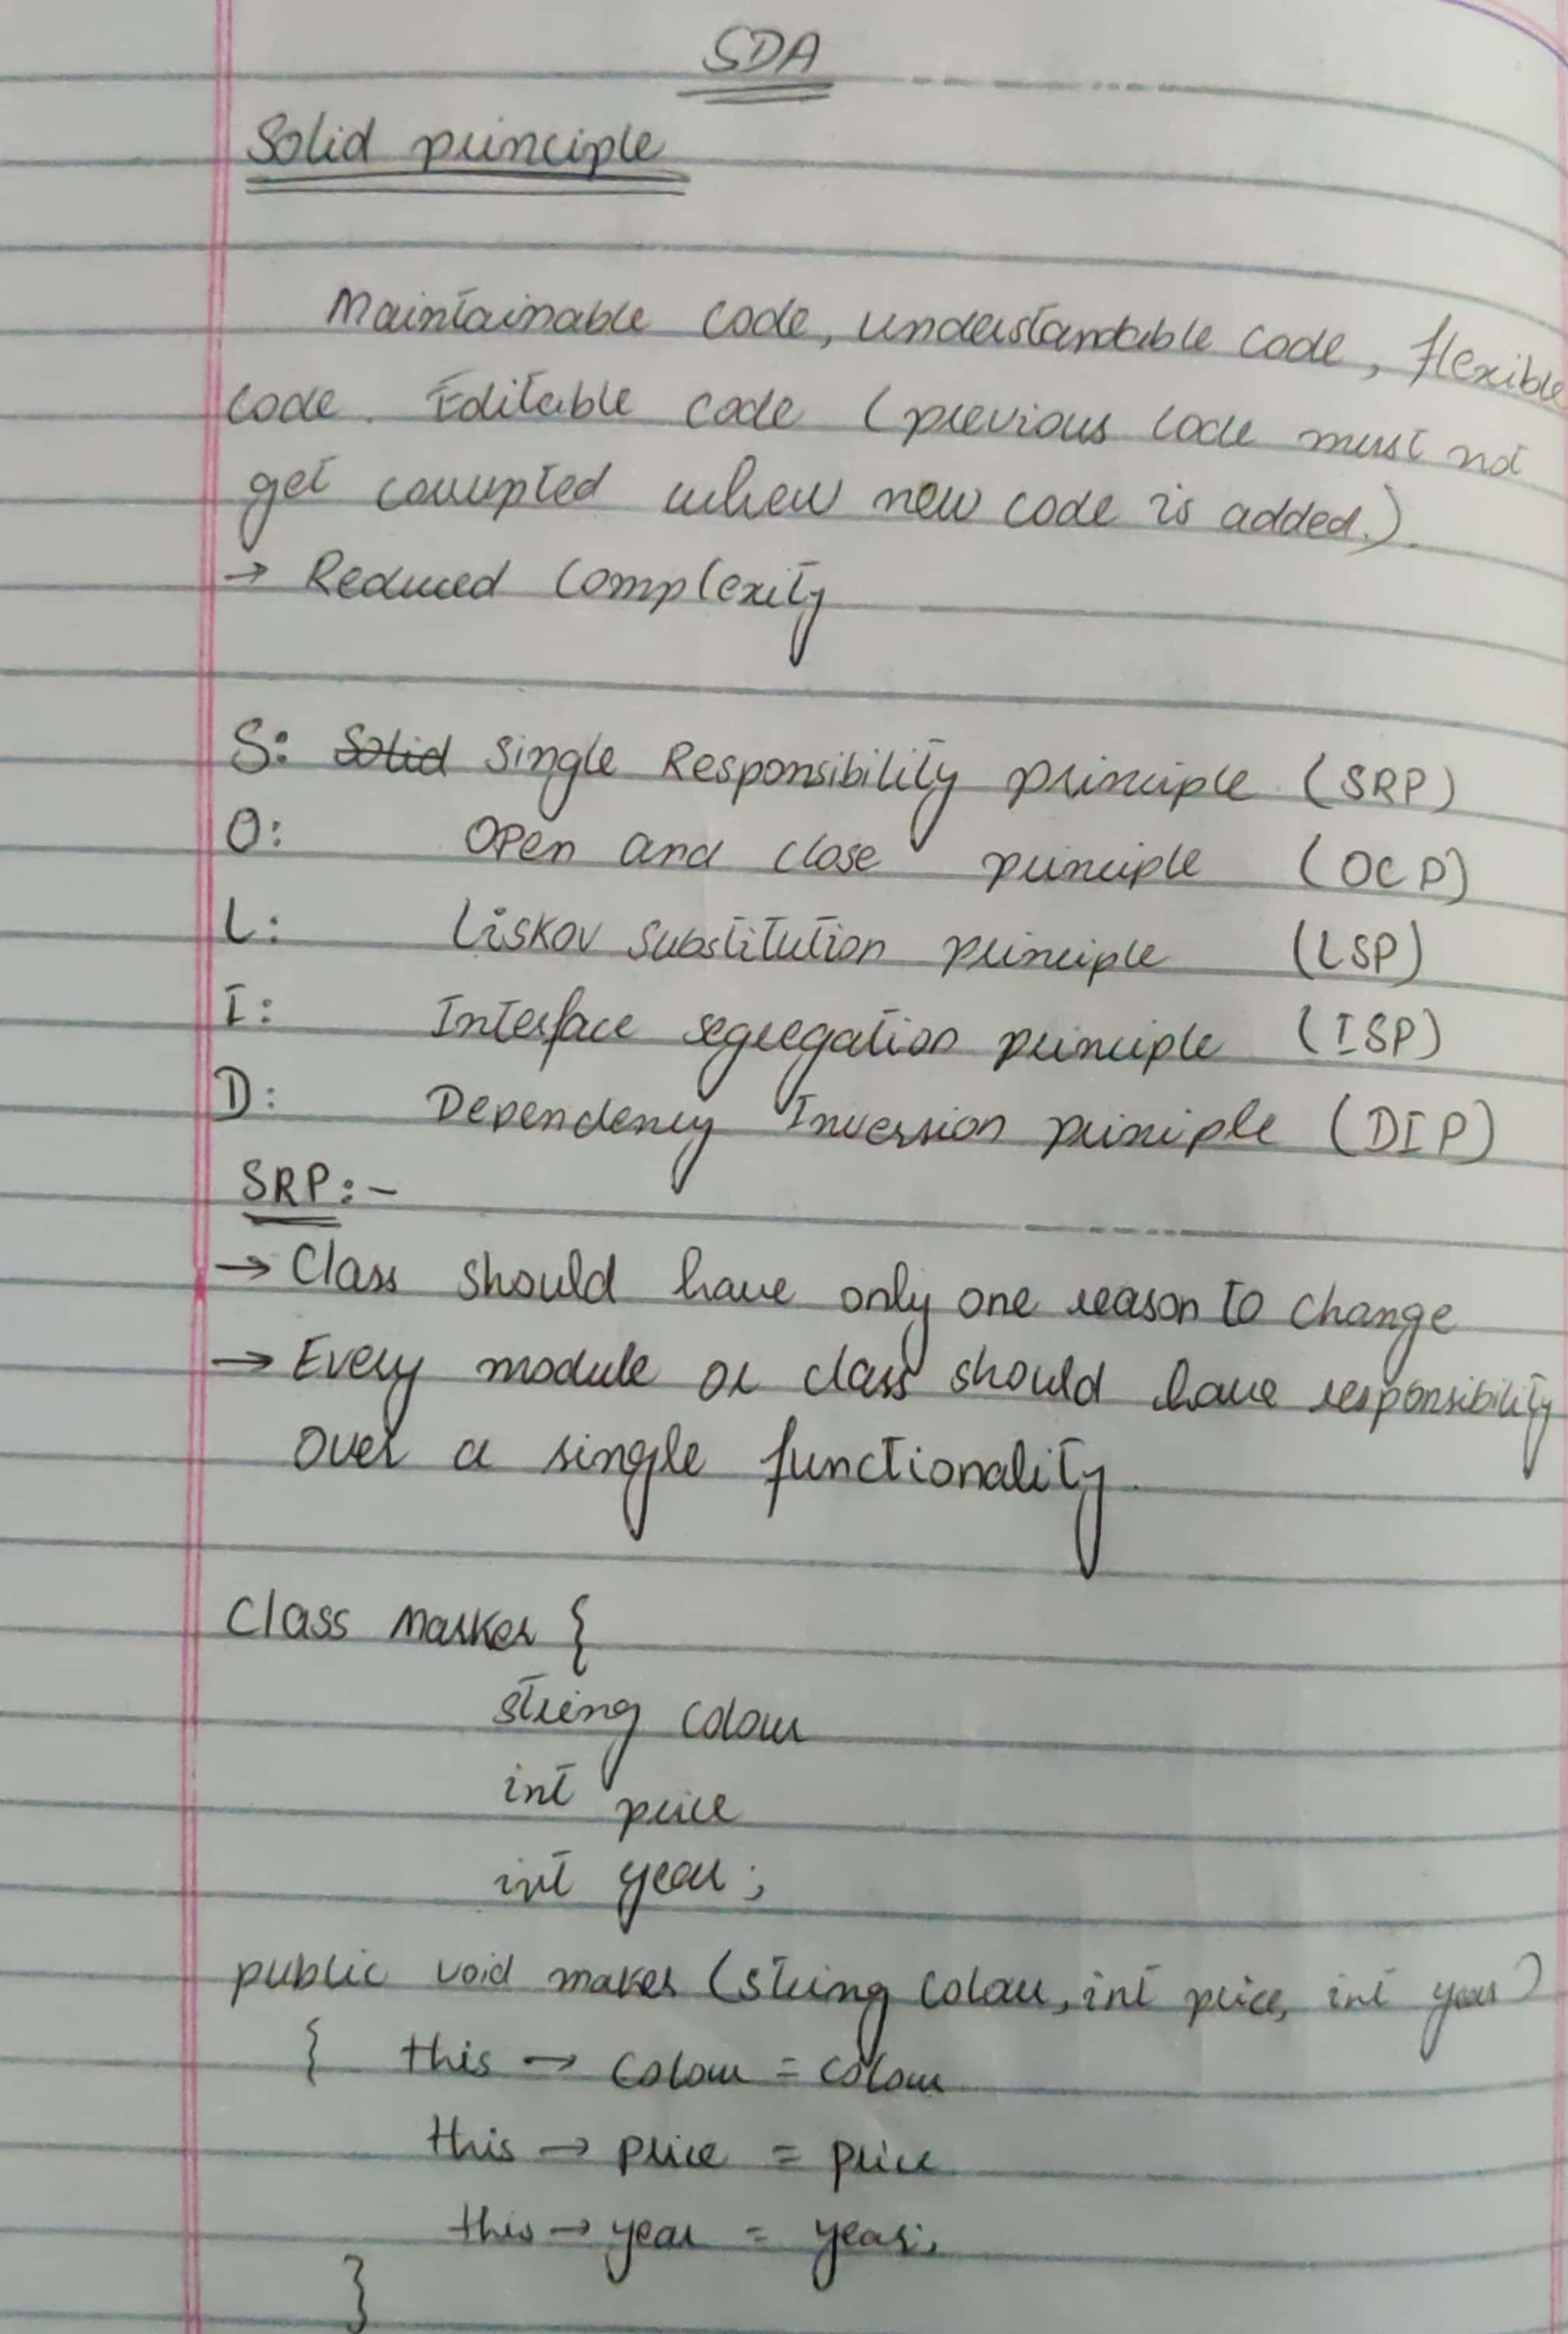 SDA
Solid principle
Maintainable code, understandable code, flexible
code. Editable code (previous code must not
get corrupted when new code is added.).
→ Reduced Complexity
S: Solid Single Responsibility principle (SRP)
O: Open and close principle (OCP)
L: Liskov Substitution principle (LSP)
I: Interface segregation principle (ISP)
D: Dependency Inversion priniple (DIP)
SRP:-
→ Class should have only one reason to change
→ Every module or class should have responsibility
over a single functionality.
Class Marker {
string colour
int price
int year;
public void maker (string colour, int price, int year)
{ this → colour = colour
this → price = price
this → year = year;
}